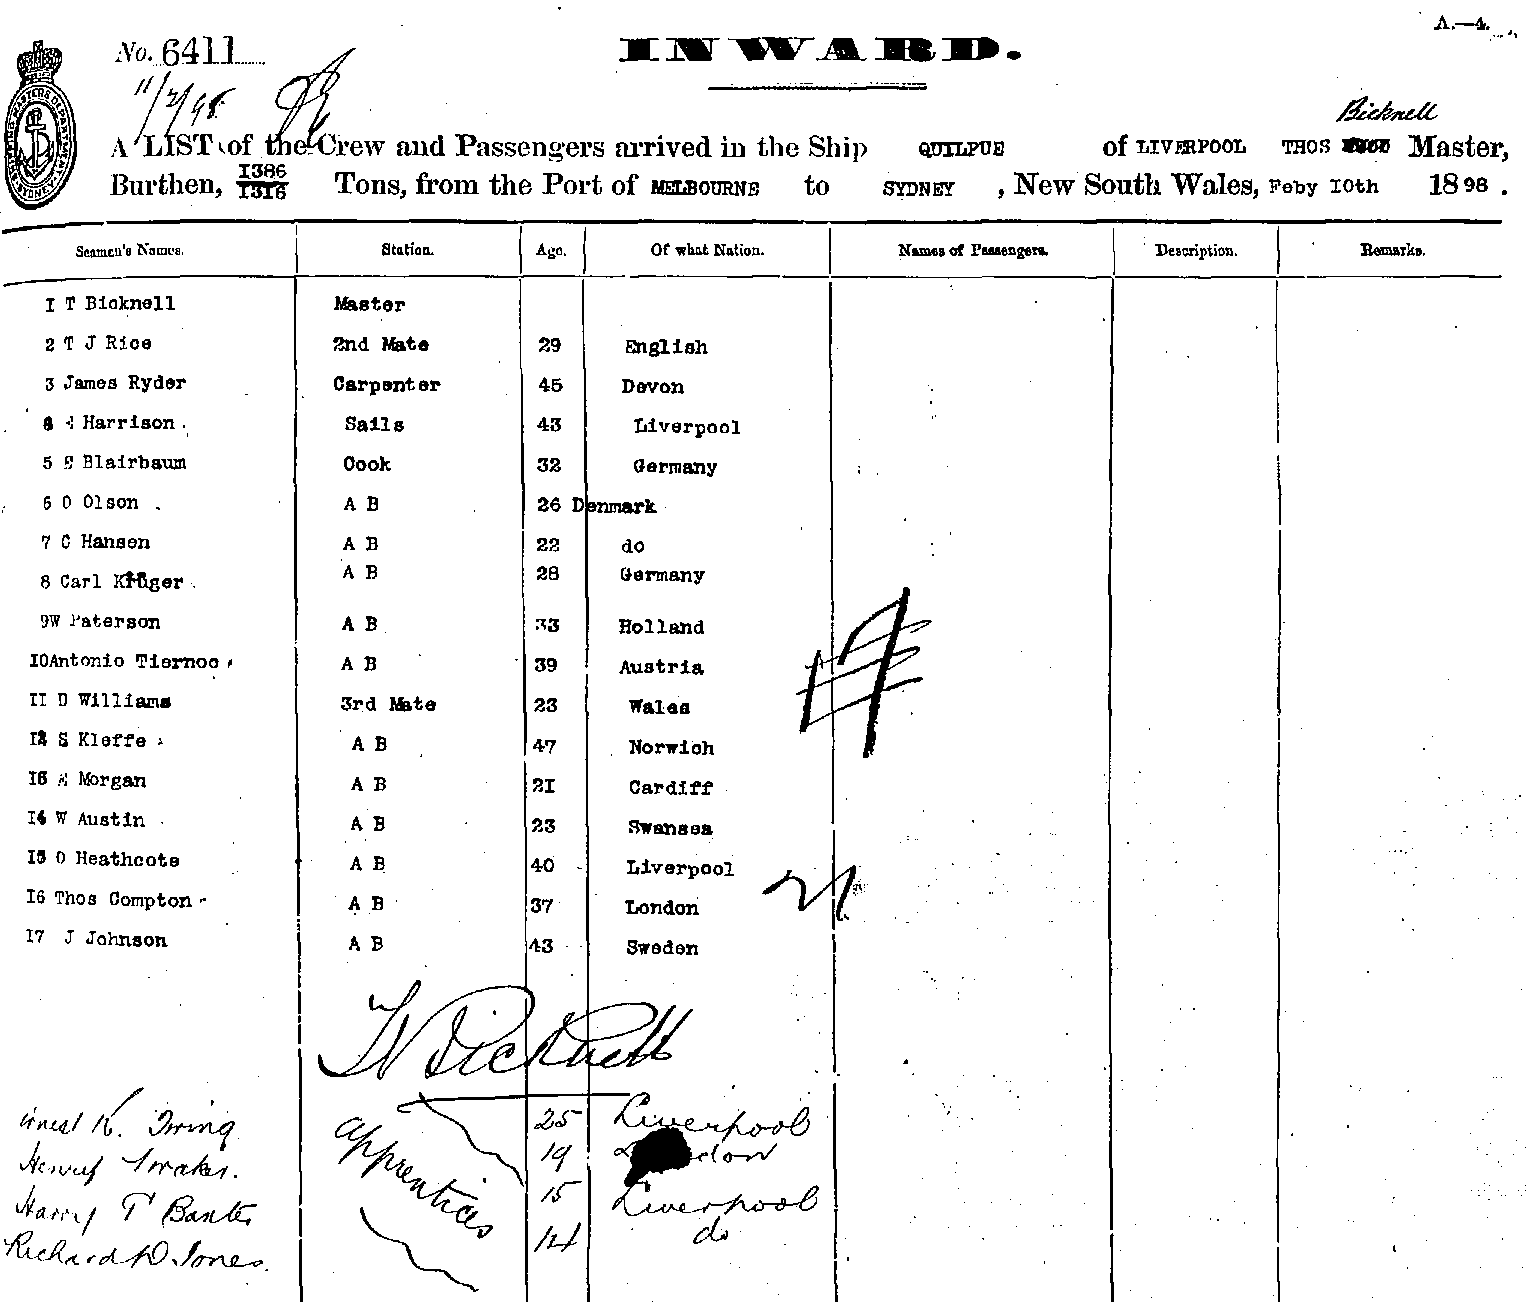 A.—4.
No. 6411
INWARD.
11/2/98
Bicknell
A LIST of the Crew and Passengers arrived in the Ship QUILPUE of LIVERPOOL THOS Master,
Burthen, 1386 1316 Tons, from the Port of MELBOURNE to SYDNEY, New South Wales, Feby 10th 1898.
Seamen's Names. Station. Age. Of what Nation. Names of Passengers. Description. Remarks.
1 T Bicknell Master
2 T J Rice 2nd Mate 29 English
3 James Ryder Carpenter 45 Devon
4 Harrison Sails 43 Liverpool
5 Blairbaum Cook 32 Germany
6 O Olson A B 26 Denmark
7 C Hansen A B 22 do
8 Carl Kruger A B 28 Germany
9 W Paterson A B 33 Holland
10 Antonio Tiernoo A B 39 Austria
11 D Williams 3rd Mate 23 Wales
12 S Kleffe A B 47 Norwich
13 Morgan A B 21 Cardiff
14 W Austin A B 23 Swansea
15 O Heathcote A B 40 Liverpool
16 Thos Compton A B 37 London
17 J Johnson A B 43 Sweden
T Bicknell
Ernest K. Irving apprentices 25 Liverpool
Henry 19
Harry T Baxter 15 Liverpool
Richard D. Jones. 14 do